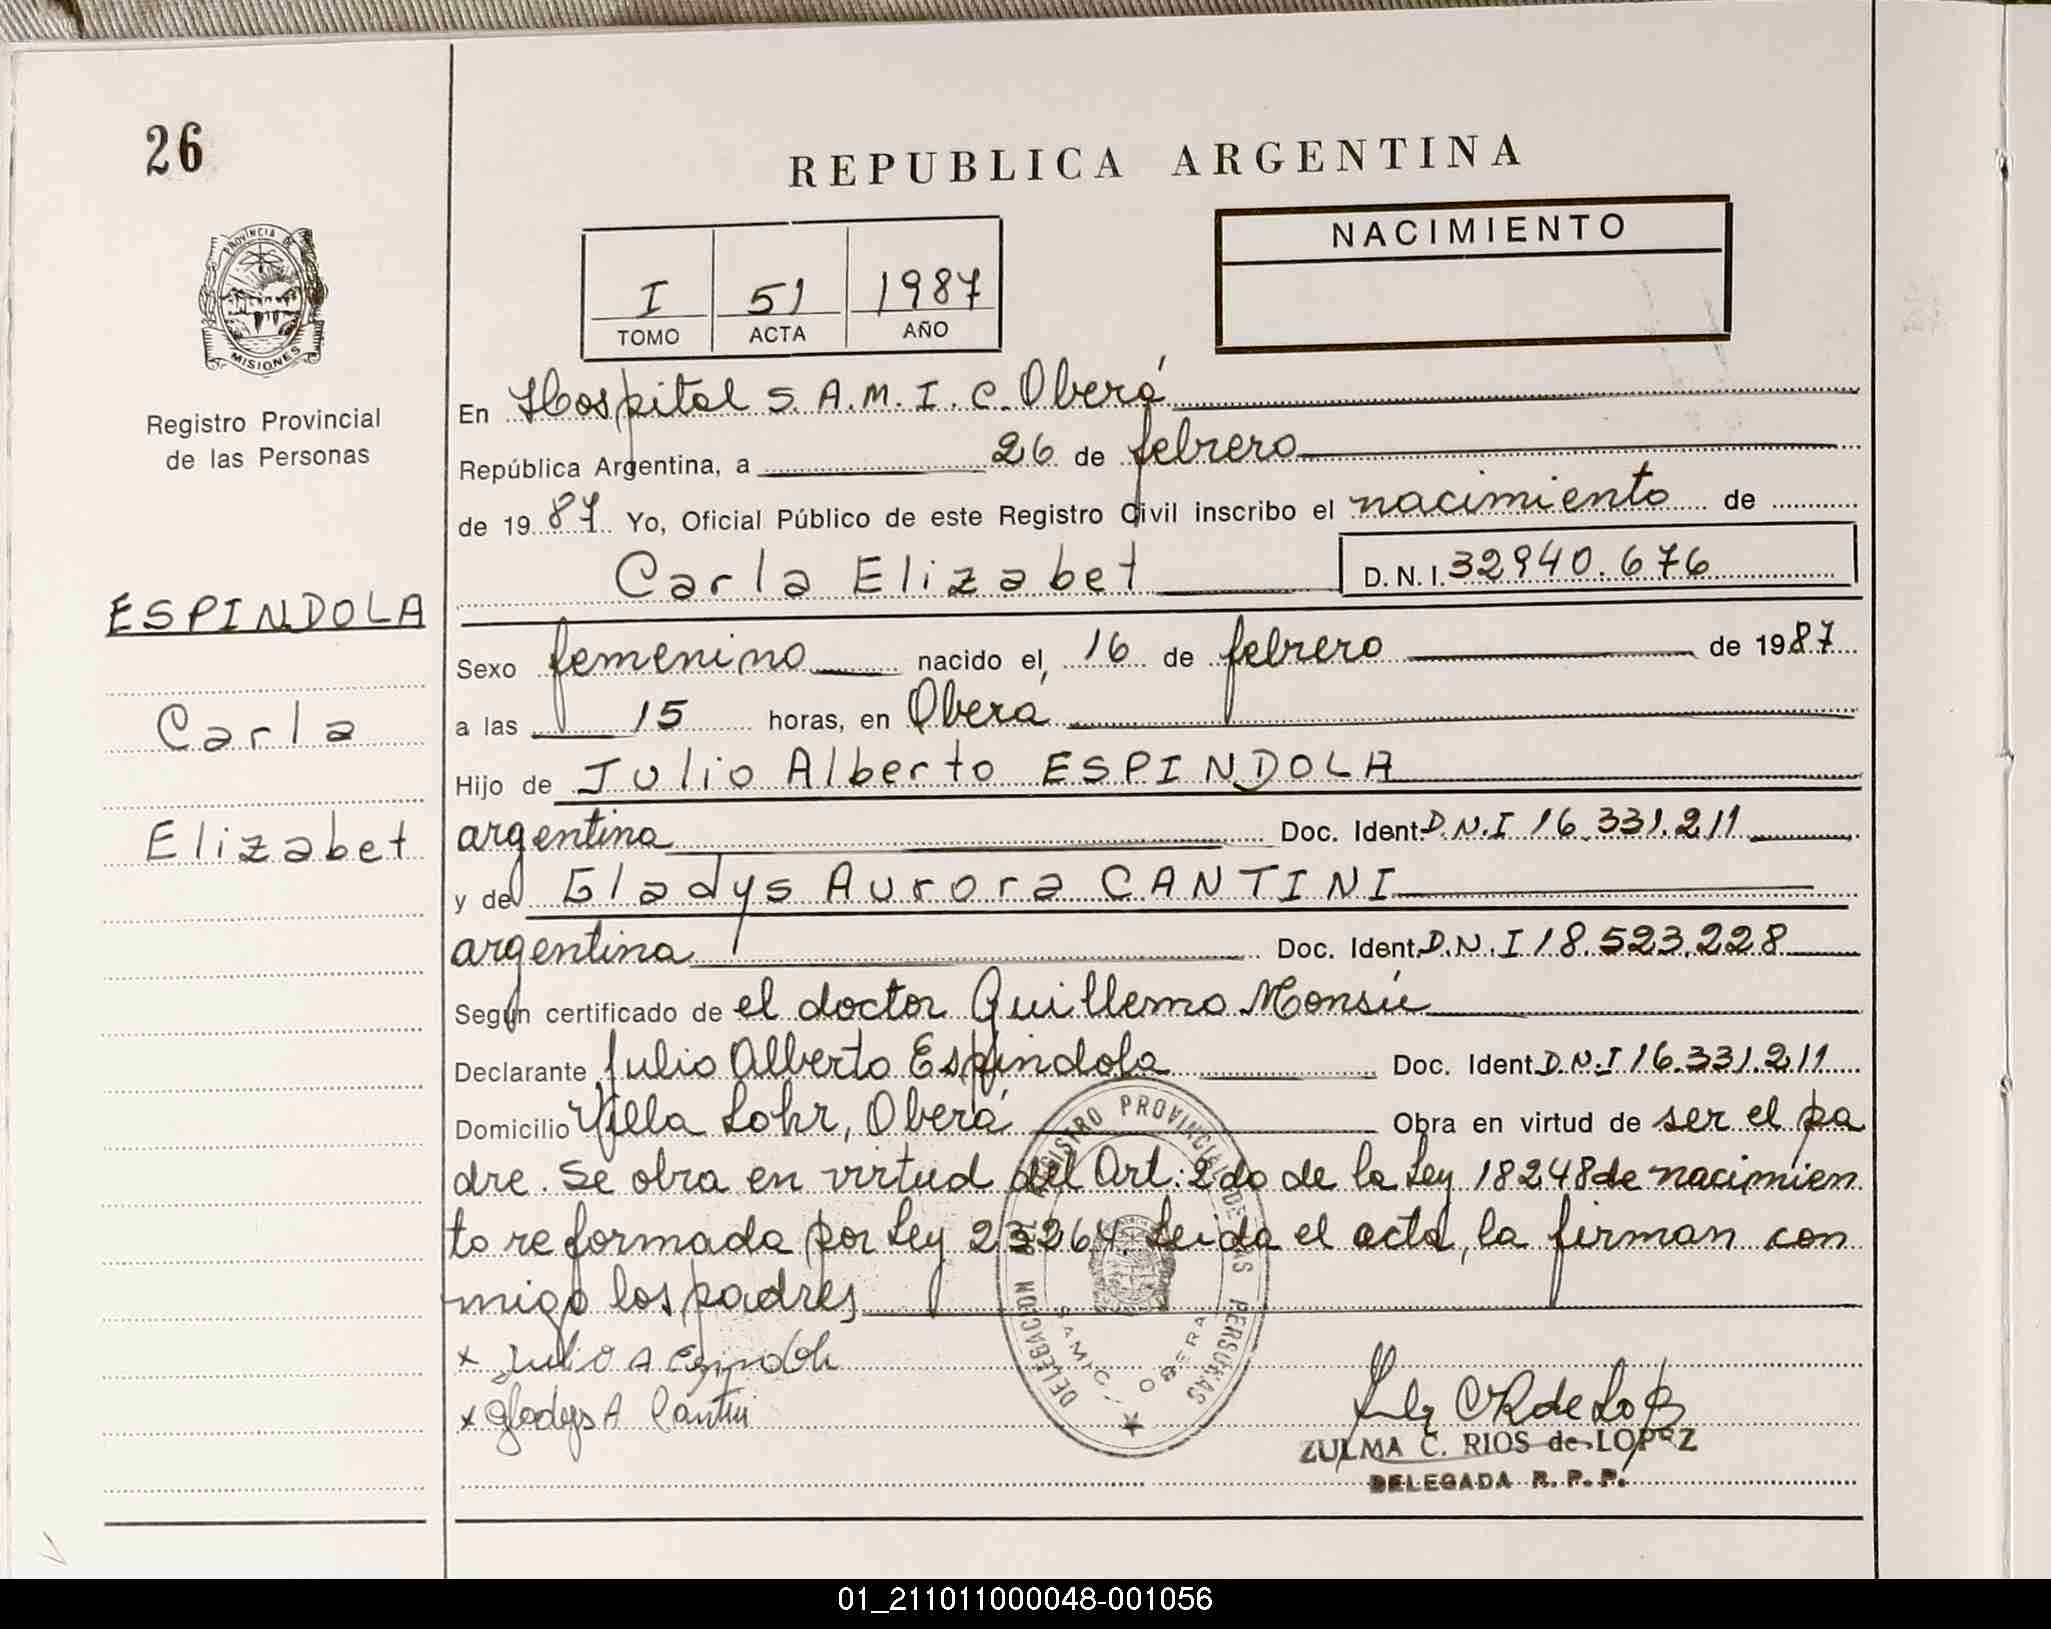 26
REPUBLICA ARGENTINA
PROVINCIA DE
MISIONES
Registro Provincial
de las Personas
ESPINDOLA
Carla
Elizabet
I 51 1987
TOMO ACTA AÑO
NACIMIENTO
En Hospital S.A.M.I.C. Oberá
República Argentina, a 26 de febrero
de 1987 Yo, Oficial Público de este Registro Civil inscribo el nacimiento de
Carla Elizabet D.N.I. 32940.676
Sexo femenino nacido el, 16 de febrero de 1987
a las 15 horas, en Oberá
Hijo de Julio Alberto ESPINDOLA
argentina Doc. Ident. D.N.I 16.331.211
y de Gladys Aurora CANTINI
argentina Doc. Ident. D.N.I 18.523.228
Según certificado de el doctor Guillermo Monsú
Declarante Julio Alberto Espindola Doc. Ident. D.N.I 16.331.211
Domicilio Villa Lohr, Oberá Obra en virtud de ser el pa
dre. Se obra en virtud del Art: 2do de la Ley 18248 de nacimien
to reformada por Ley 23264. Leida el acta, la firman con
migo los padres
x Julio A Espindola
x Gladys A Cantini
DELEGACION DEL REGISTRO PROVINCIAL DE LAS PERSONAS
SAMIC - OBERA
ZULMA C. RIOS de LOPEZ
DELEGADA R. P. P.
01_211011000048-001056